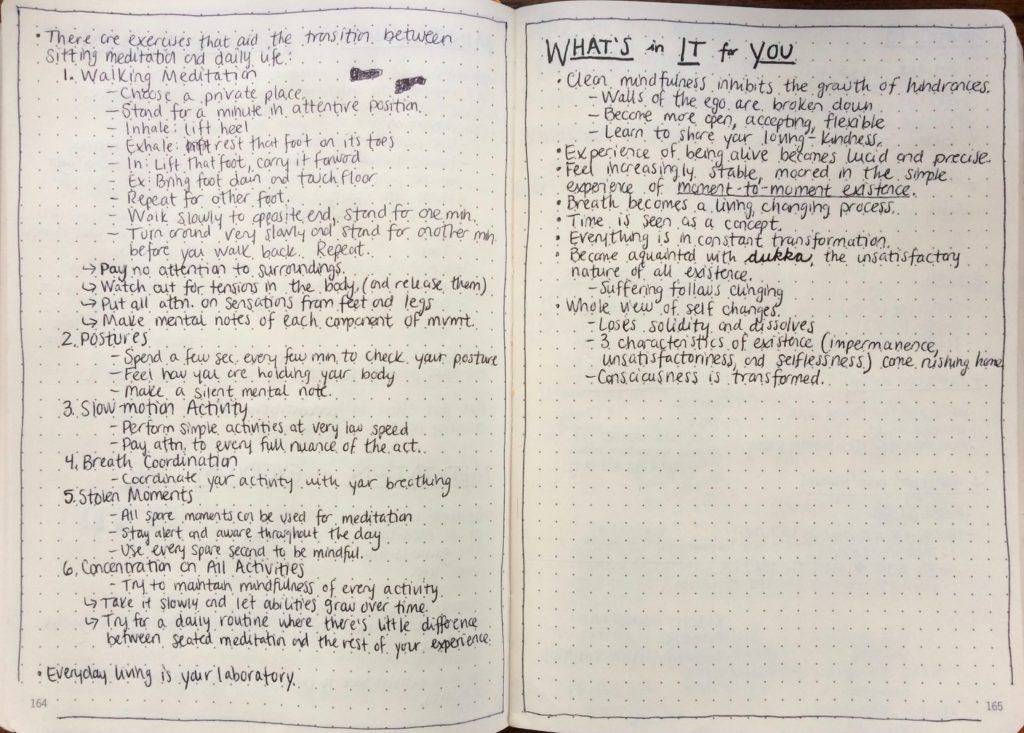 • There are exercises that aid the transition between
sitting meditation and daily life:
1. Walking Meditation
– Choose a private place.
– Stand for a minute in attentive position.
– Inhale: lift heel
– Exhale: rest that foot on its toes
– In: Lift that foot, carry it forward
– Ex: Bring foot down and touch floor
– Repeat for other foot.
– Walk slowly to opposite end, stand for one min.
– Turn around very slowly and stand for another min
before you walk back. Repeat.
↳ Pay no attention to surroundings.
↳ Watch out for tensions in the body. (and release them)
↳ Put all attn. on sensations from feet and legs
↳ Make mental notes of each component of mvmt.
2. Postures
– Spend a few sec. every few min. to check your posture
– Feel how you are holding your body
– Make a silent mental note.
3. Slow-motion Activity
– Perform simple activities at very low speed
– Pay attn. to every full nuance of the act.
4. Breath Coordination
– Coordinate your activity with your breathing
5. Stolen Moments
– All spare moments can be used for meditation
– Stay alert and aware throughout the day
– Use every spare second to be mindful.
6. Concentration on All Activities
– Try to maintain mindfulness of every activity
↳ Take it slowly and let abilities grow over time.
↳ Try for a daily routine where there's little difference
between seated meditation and the rest of your experience.
• Everyday living is your laboratory.
164
WHAT'S in IT for YOU
• Clean mindfulness inhibits the growth of hindrances.
– Walls of the ego are broken down
– Become more open, accepting, flexible
– Learn to share your loving-kindness.
• Experience of being alive becomes lucid and precise.
• Feel increasingly stable, moored in the simple
experience of moment-to-moment existence.
• Breath becomes a living, changing process.
• Time is seen as a concept.
• Everything is in constant transformation.
• Become aquainted with dukka, the unsatisfactory
nature of all existence.
– Suffering follows clinging
• Whole view of self changes.
– Loses solidity and dissolves
– 3 characteristics of existence (impermanence,
unsatisfactoriness, and selflessness) come rushing home
– Consciousness is transformed.
165